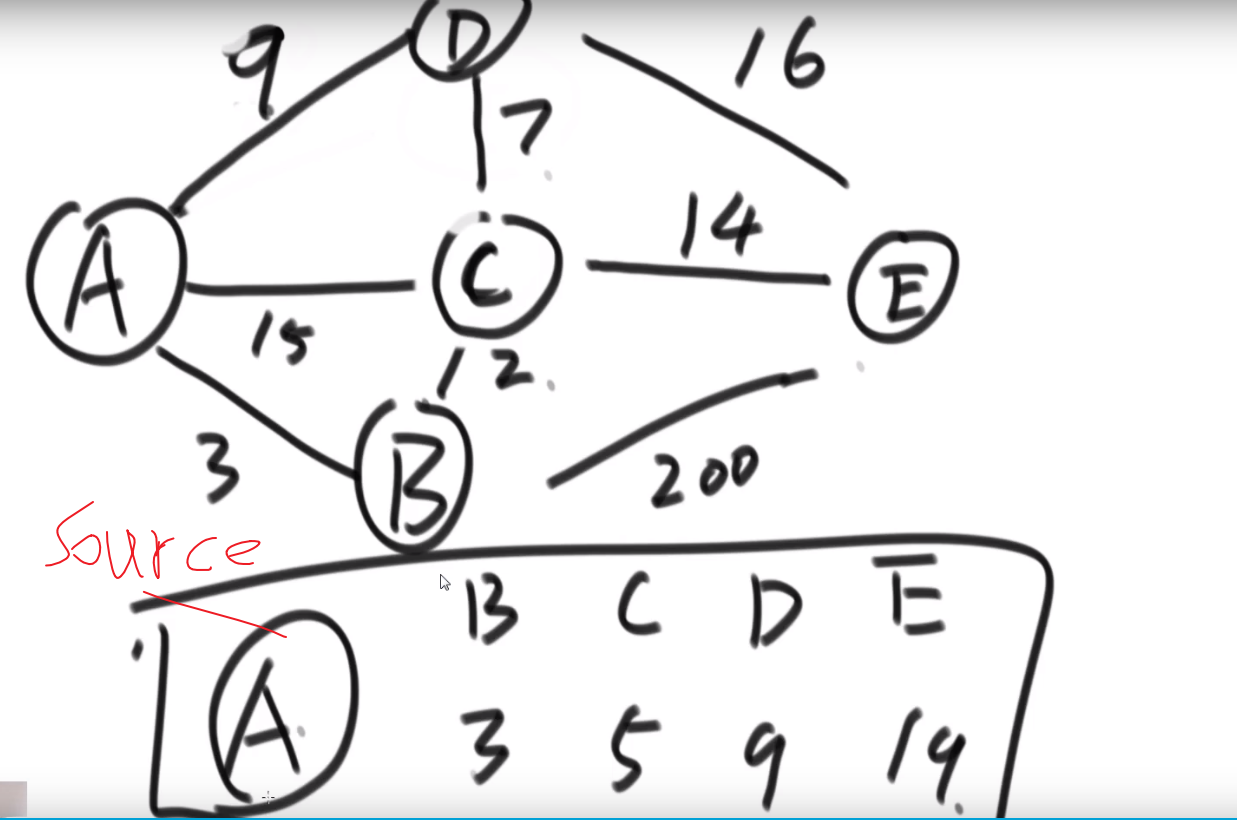 9 D 16
7
14
A C E
15
2
3 B 200
Source
B C D E
A 3 5 9 19